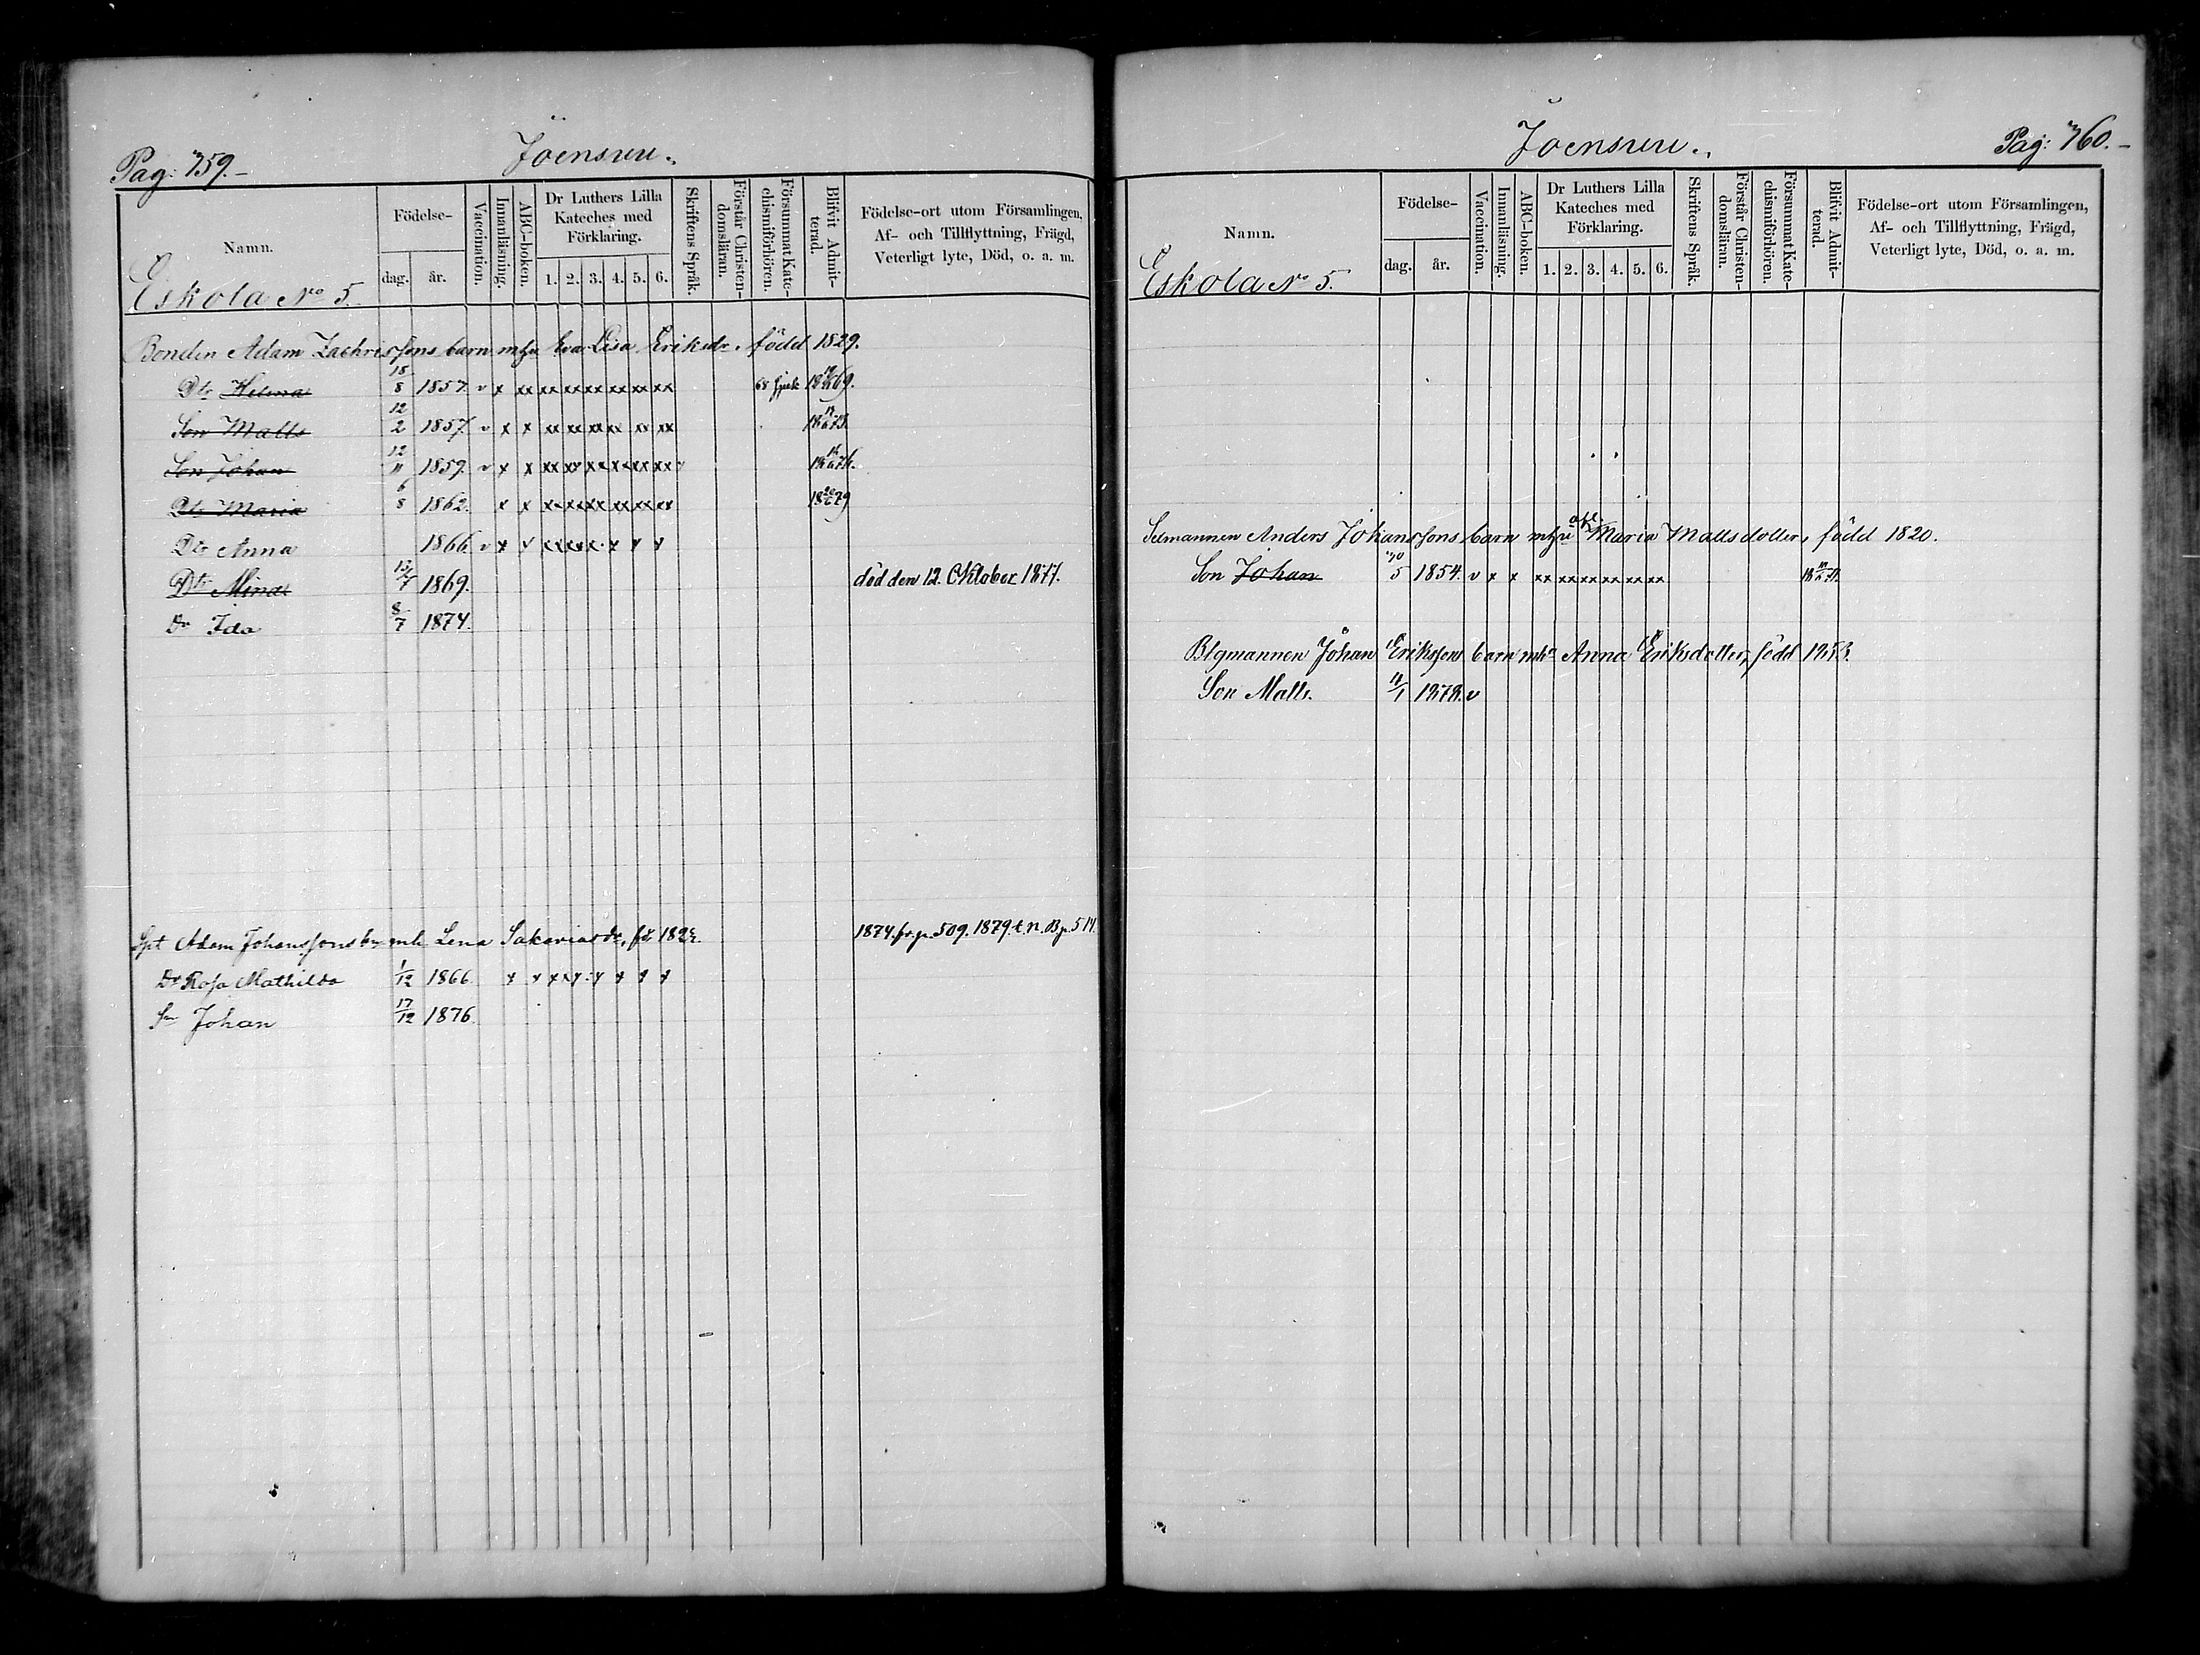 Pag: 759.
Joensuu.
Namn.
Födelse-
dag.
år.
Vaccination.
Innanläsning.
ABC-boken.
Dr Luthers Lilla Kateches med Förklaring.
1. 2. 3. 4. 5. 6.
Skriftens Språk.
Förstår Christendomsläran.
Försummat Katechismiförhören.
Blifvit Admitterad.
Födelse-ort utom Församlingen,
Af- och Tillflyttning, Frägd,
Veterligt lyte, Död, o. a. m.
Eskola No 5.
Bonden Adam Zachrissons barn mhu Eva Lisa Eriksdr. född 1829.
Dtr Helena 18/8 1857. v x xx xx xx xx xx xx xx
Son Matts 12/2 1857. v x x xx xx xx xx xx xx
Son Johan 12/11 1859. v x x xx xx xx xx xx xx
Dtr Maria 6/8 1862. x x xx xx xx xx xx xx
Dtr Anna 1866 v x
Dtr Mina 13/7 1869. död den 12 Oktober 1877.
Dr Ida 8/7 1874.
Spt Adam Johanssons bn mh Lena Sakariasdr, 1874. fr. p. 509. 1879. t. n. B p. 514
Dr Rosa Mathilda 1/12 1866.
Sn Johan 17/12 1876.
Pag: 760.
Joensuu.
Namn.
Födelse-
dag.
år.
Vaccination.
Innanläsning.
ABC-boken.
Dr Luthers Lilla Kateches med Förklaring.
1. 2. 3. 4. 5. 6.
Skriftens Språk.
Förstår Christendomsläran.
Försummat Katechismiförhören.
Blifvit Admitterad.
Födelse-ort utom Församlingen,
Af- och Tillflyttning, Frägd,
Veterligt lyte, Död, o. a. m.
Eskola No 5.
Anders Johanssons barn mhu Maria Mattsdotter, född 1820.
Son Johan 5 1854. v x x xx xx xx xx xx xx
Johan Erikssons barn mhu Anna Eriksdotter, född 1853.
Son Matts. 1878. v